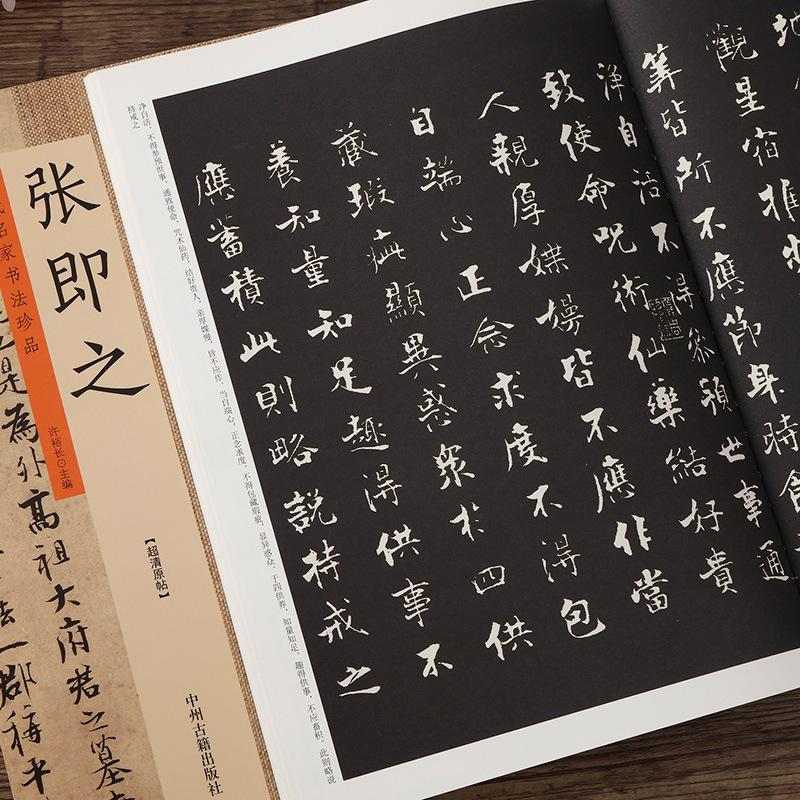 地
觀星宿推步
筭皆所不應節身時食
淨自活不得參預世事通
致使命呪術仙藥結好貴
人親厚媟嫚皆不應作當
自端心正念求度不得包
藏瑕疵顯異惑眾於四供
養知量知足趣得供事不
應蓄積此則略說持戒之
净自活，不得参预世事，通致使命，咒术仙药，结好贵人，亲厚媟嫚，皆不应作。当自端心，正念求度，不得包藏瑕疵，显异惑众，于四供养，知量知足，趣得供事，不应畜积。此则略说
持戒之
张即之
代名家书法珍品
许裕长⊙主编
【超清原帖】
中州古籍出版社
高祖大府君之墓
是為外
法一郡稱平